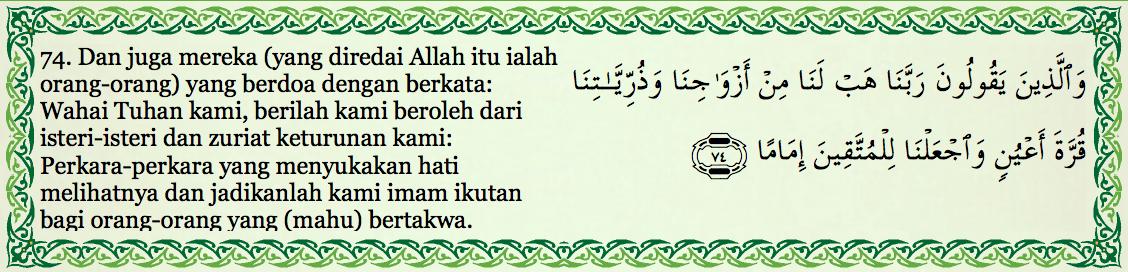 74. Dan juga mereka (yang diredai Allah itu ialah
orang-orang) yang berdoa dengan berkata:
Wahai Tuhan kami, berilah kami beroleh dari
isteri-isteri dan zuriat keturunan kami:
Perkara-perkara yang menyukakan hati
melihatnya dan jadikanlah kami imam ikutan
bagi orang-orang yang (mahu) bertakwa.
وَٱلَّذِينَ يَقُولُونَ رَبَّنَا هَبۡ لَنَا مِنۡ أَزۡوَٰجِنَا وَذُرِّيَّـٰتِنَا
قُرَّةَ أَعۡيُنٍ۬ وَٱجۡعَلۡنَا لِلۡمُتَّقِينَ إِمَامًا ٧٤